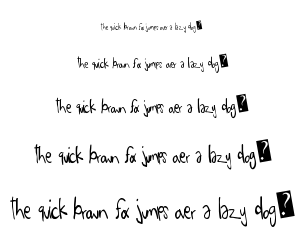 the quick brown fox jumps over a lazy dog?
the quick brown fox jumps over a lazy dog?
the quick brown fox jumps over a lazy dog?
the quick brown fox jumps over a lazy dog?
the quick brown fox jumps over a lazy dog?